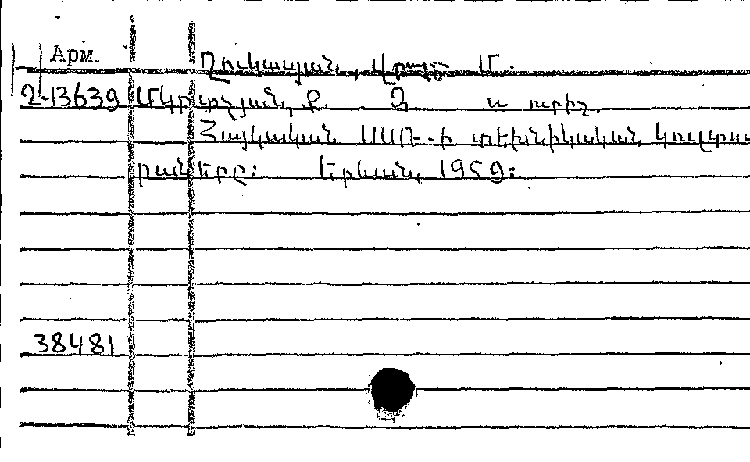 Арм.
Ղուկասյան, Վրամ Մ.
2-13639 Մկրտչյան, Ք. Զ. և ուրիշ.
Հայկական ՍՍՌ-ի տեխնիկական կուլտու
րաները: Երևան, 1959:
38481